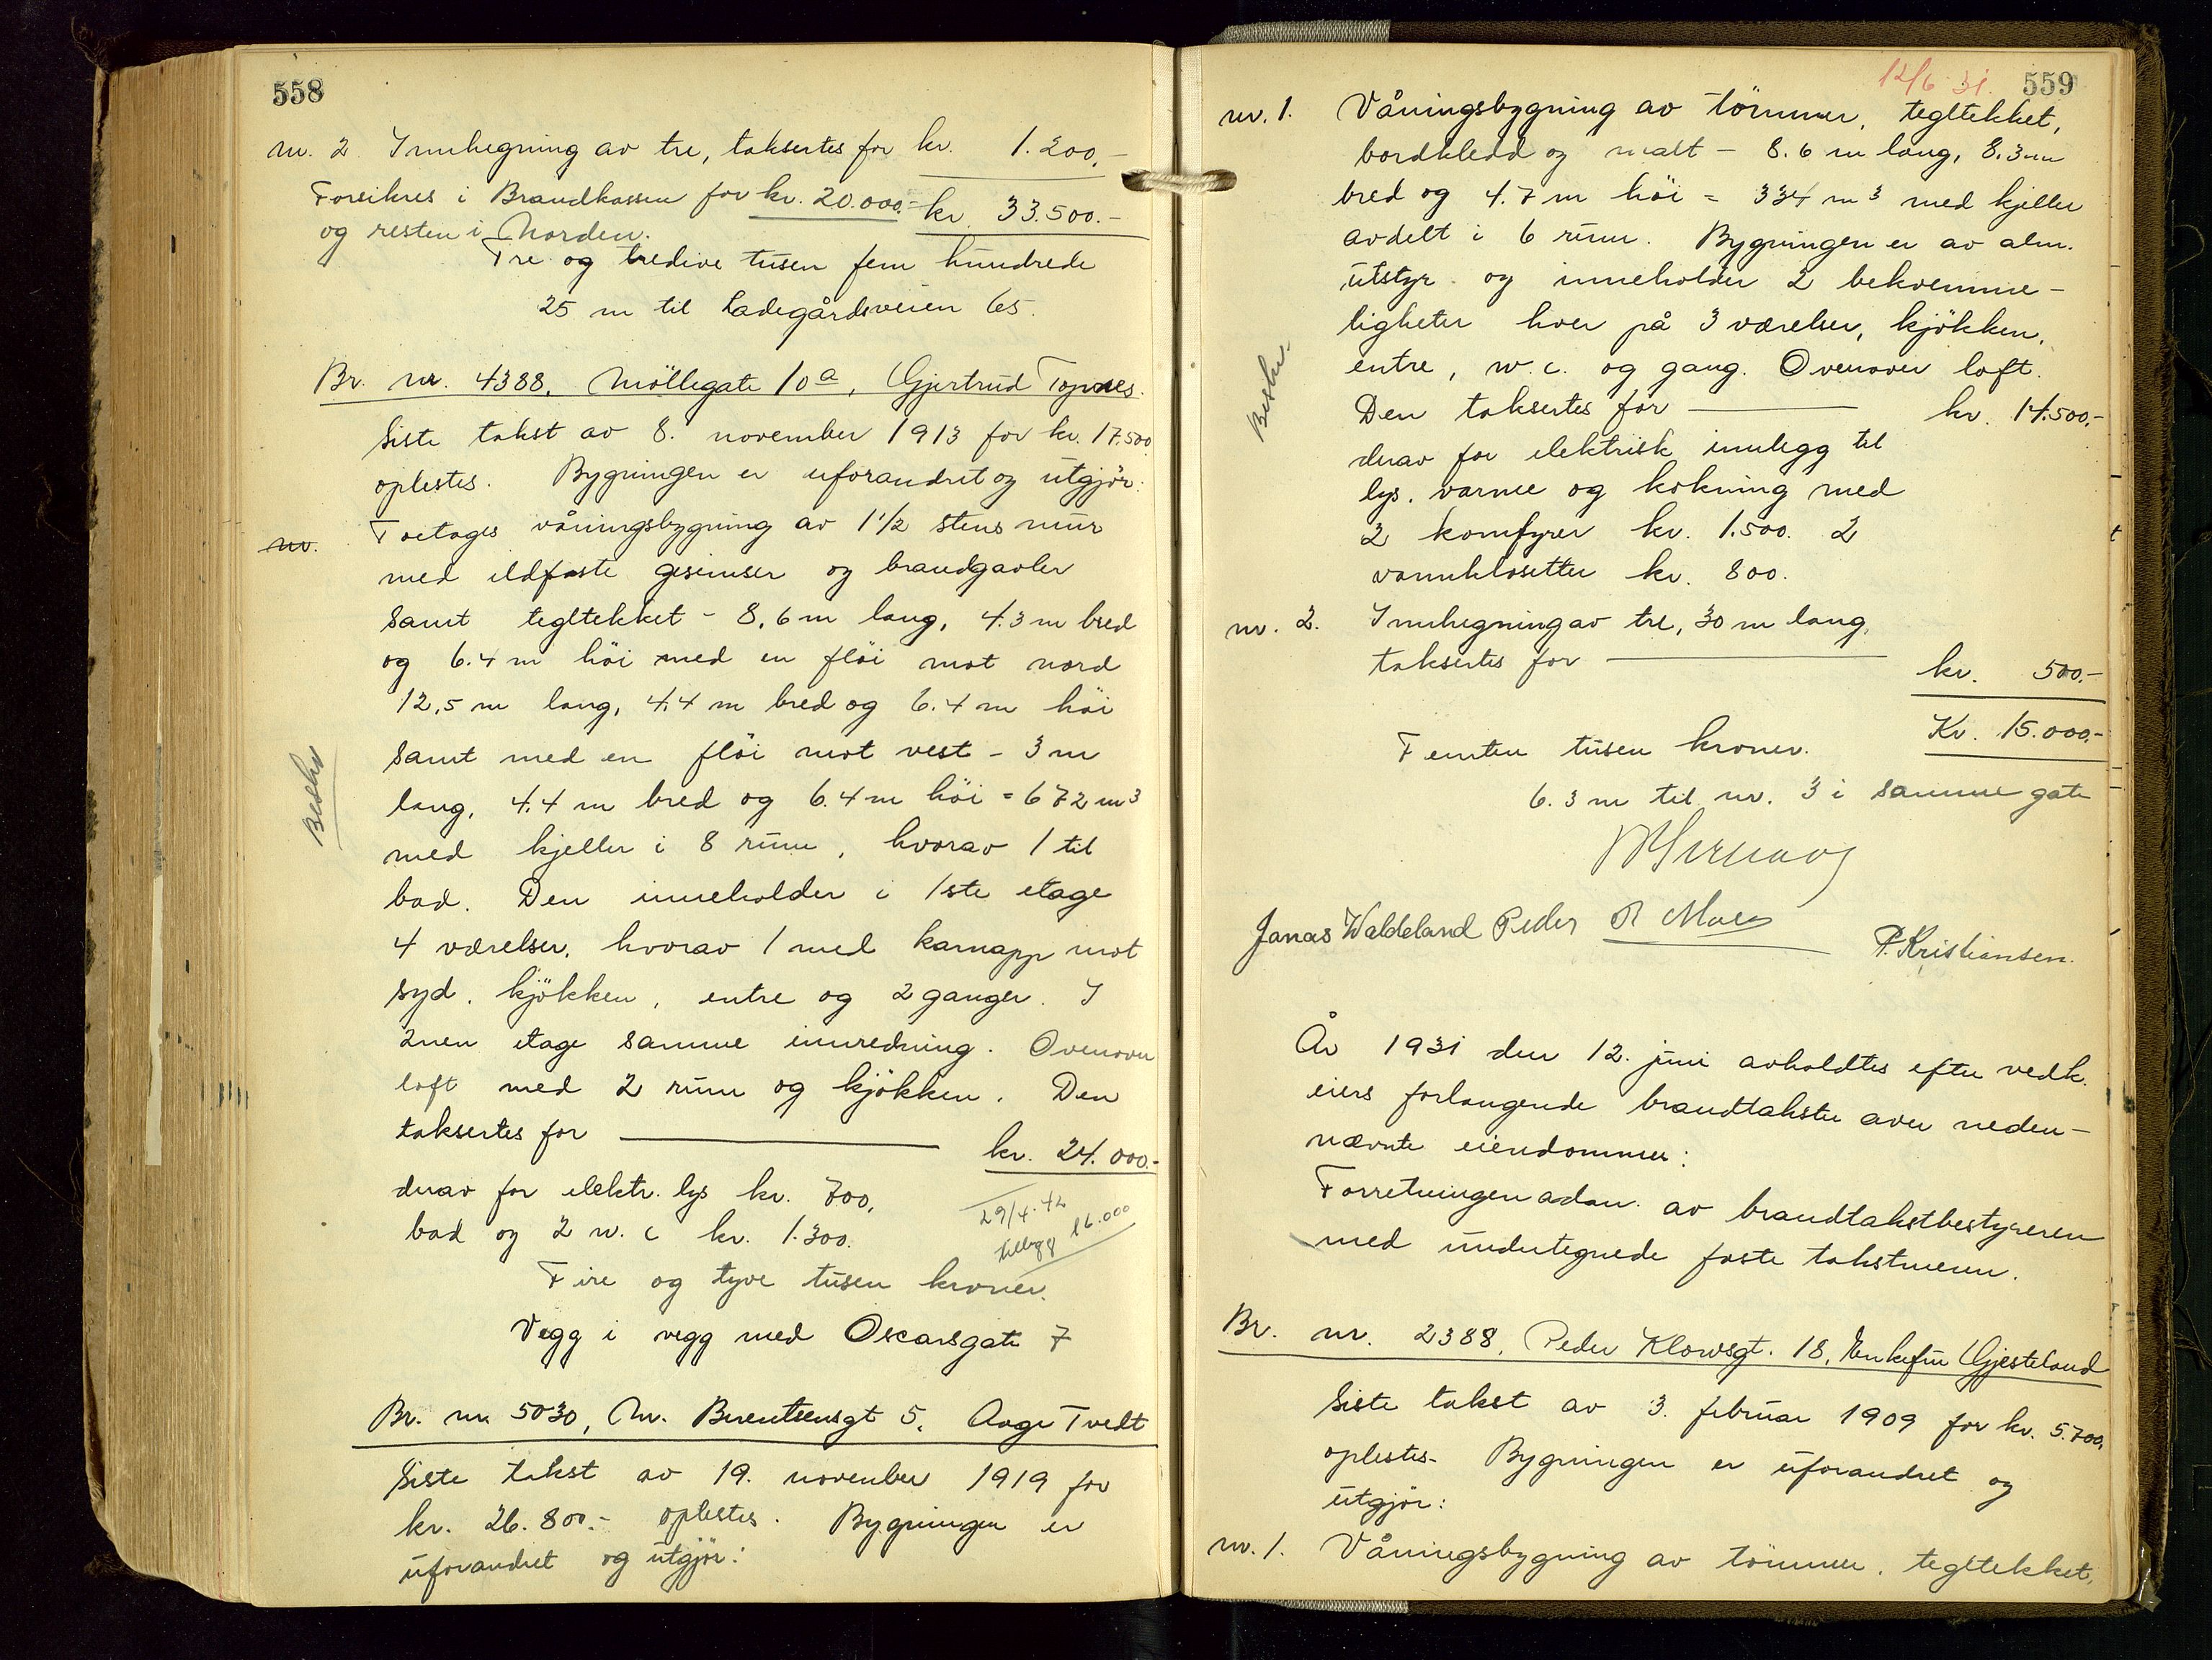 558
nr. 2 Innhegning av tre, taksertes for kr. 1.200,-
Forsikres i Brandkassen for kr. 20.000,- kr. 33.500.-
og resten i Norden.
Tre og tredive tusen fem hundrede
25 m til Ladegårdsveien 65.
Br. nr. 4388. Möllegate 10a, Gjertrud Topnes.
Siste takst av 8. november 1913 for kr. 17.500
oplestes. Bygningen er uforandret og utgjör:
nr. Toetages våningsbygning av 1 1/2 stens mur
med ildfaste gesimser og brandgavler
samt tegltekket - 8,6 m lang, 4.3 m bred
og 6.4 m höi med en flöi mot nord
12,5 m lang, 4.4 m bred og 6.4 m höi
samt med en flöi mot vest - 3 m
lang, 4.4 m bred og 6.4 m höi = 672 m3
med kjeller i 8 rum, hvorav 1 til
bad. Den inneholder i 1ste etage
4 værelser, hvorav 1 med karnapp mot
syd, kjökken, entre og 2 ganger. I
2nen etage samme innredning. Ovenover
loft med 2 rum og kjökken. Den
taksertes for kr. 24.000.-
derav for elektr. lys kr. 700,
bad og 2 w.c kr. 1.300.
29/4.42
tillegg 16.000
Fire og tyve tusen kroner.
Vegg i vegg med Oscarsgate 7
Br. nr. 5030, Nr. Berentsensgt 5. Aage Tvedt
Siste takst av 19. november 1919 for
kr. 26.800.- oplestes. Bygningen er
uforandret og utgjör:
12/6 31. 559
nr. 1. Våningsbygning av tömmer, tegltekket,
bordkledd og malt - 8.6 m lang, 8.3 m
bred og 4.7 m höi = 334 m3 med kjeller
avdelt i 6 rum. Bygningen er av alm.
utstyr og inneholder 2 bekvemme-
ligheter hver på 3 værelser, kjökken,
entre, w.c. og gang. Ovenover loft.
Den taksertes for kr. 14.500,-
derav for elektrisk innlegg til
lys, varme og kokning med
2 komfyrer kr. 1.500. 2
vannklosetter kr. 800.
nr. 2. Innhegning av tre, 30 m lang,
taksertes for kr. 500.-
Kr. 15.000.-
Femten tusen kroner.
6.3 m til nr. 3 i samme gate
Jonas Waldeland Peder R Moe P. Kristiansen.
År 1931 den 12. juni avholdtes efter vedk.
eiers forlangende brandtakster over neden-
nævnte eiendommer:
Forretningen adm. av brandtakstbestyreren
med undertegnede faste takstmenn.
Br. nr. 2388. Peder Klowsgt. 18, Enkefru Gjesteland
Siste takst av 3. februar 1909 for kr. 5.700,
oplestes. Bygningen er uforandret og
utgjör:
nr. 1. Våningsbygning av tömmer, tegltekket,